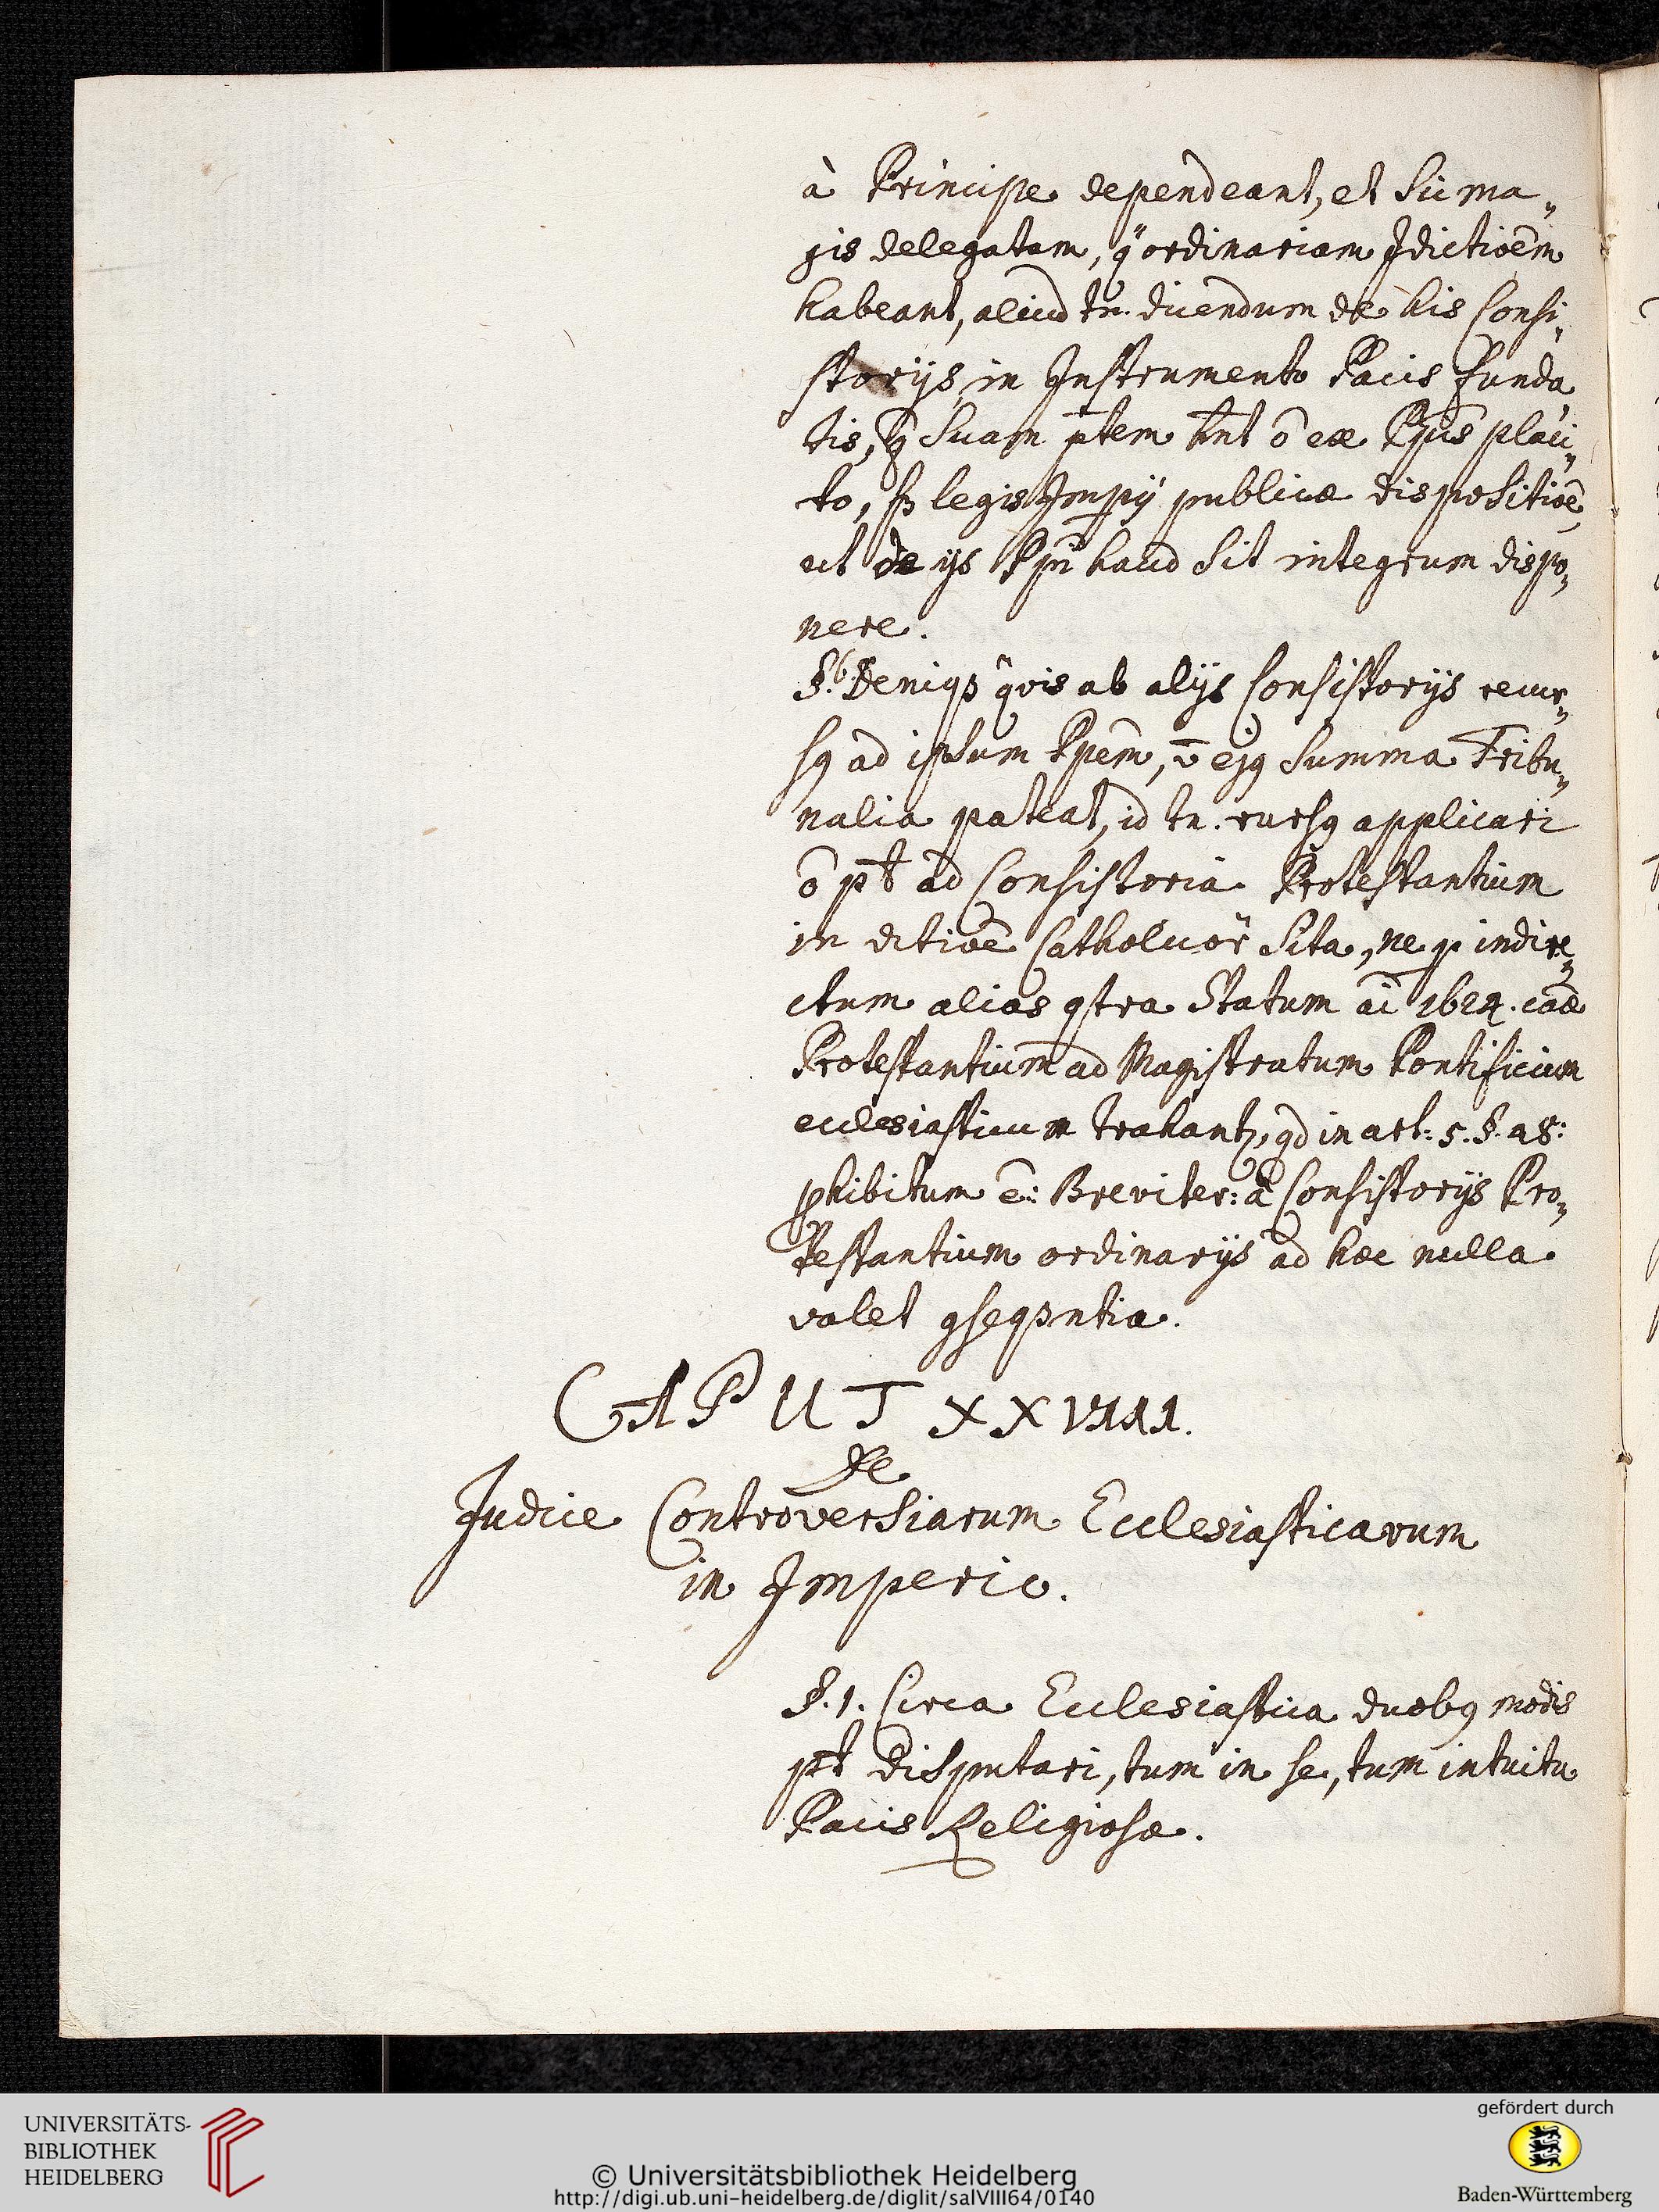 à Principe dependeant, et sic ma„
gis delegatam, q̈ ordinariam Jdictiōem
habeant, aliud tn. dicendum de his Consi„
storijs in Instrumento Pacis funda
tis, suam ptem hnt ō ex Ppis placi„
to, legis Impij publicæ dispositiōē,
ut de ijs Ppi haud sit integrum dispo„
nere.
§. 6. Deniqꝫ q̈vis ab alijs Consistorijs recur„
sꝯ ad ipsum Ppem, v̄ ejꝯ summa Tribu„
nalia pateat, id tn. rursꝯ applicari
ō pt̄ ad Consistoria Protestantium
in ditiōē Catholicor̄ sita, ne p indire„
ctum alias ꝯtra Statum ai 1624. caœ
Protestantium ad Magistratum Pontificium
ecclesiasticum trahantꝫ, qd in art: 5. §. 48:
phibitum ē: Breviter: à Consistorijs Pro„
testantium ordinarijs ad hæc nulla
valet ꝯseqꝫntia.
CAPUT XXVIIII.
De
Judice Controversiarum Ecclesiasticarum
in Imperio.
§. 1. Circa Ecclesiastica duobꝯ modis
pt̄ disputari, tum in se, tum intuitu
Pacis Religiosæ.
UNIVERSITÄTS-
BIBLIOTHEK
HEIDELBERG
© Universitätsbibliothek Heidelberg
http://digi.ub.uni-heidelberg.de/diglit/salVIII64/0140
gefördert durch
Baden-Württemberg